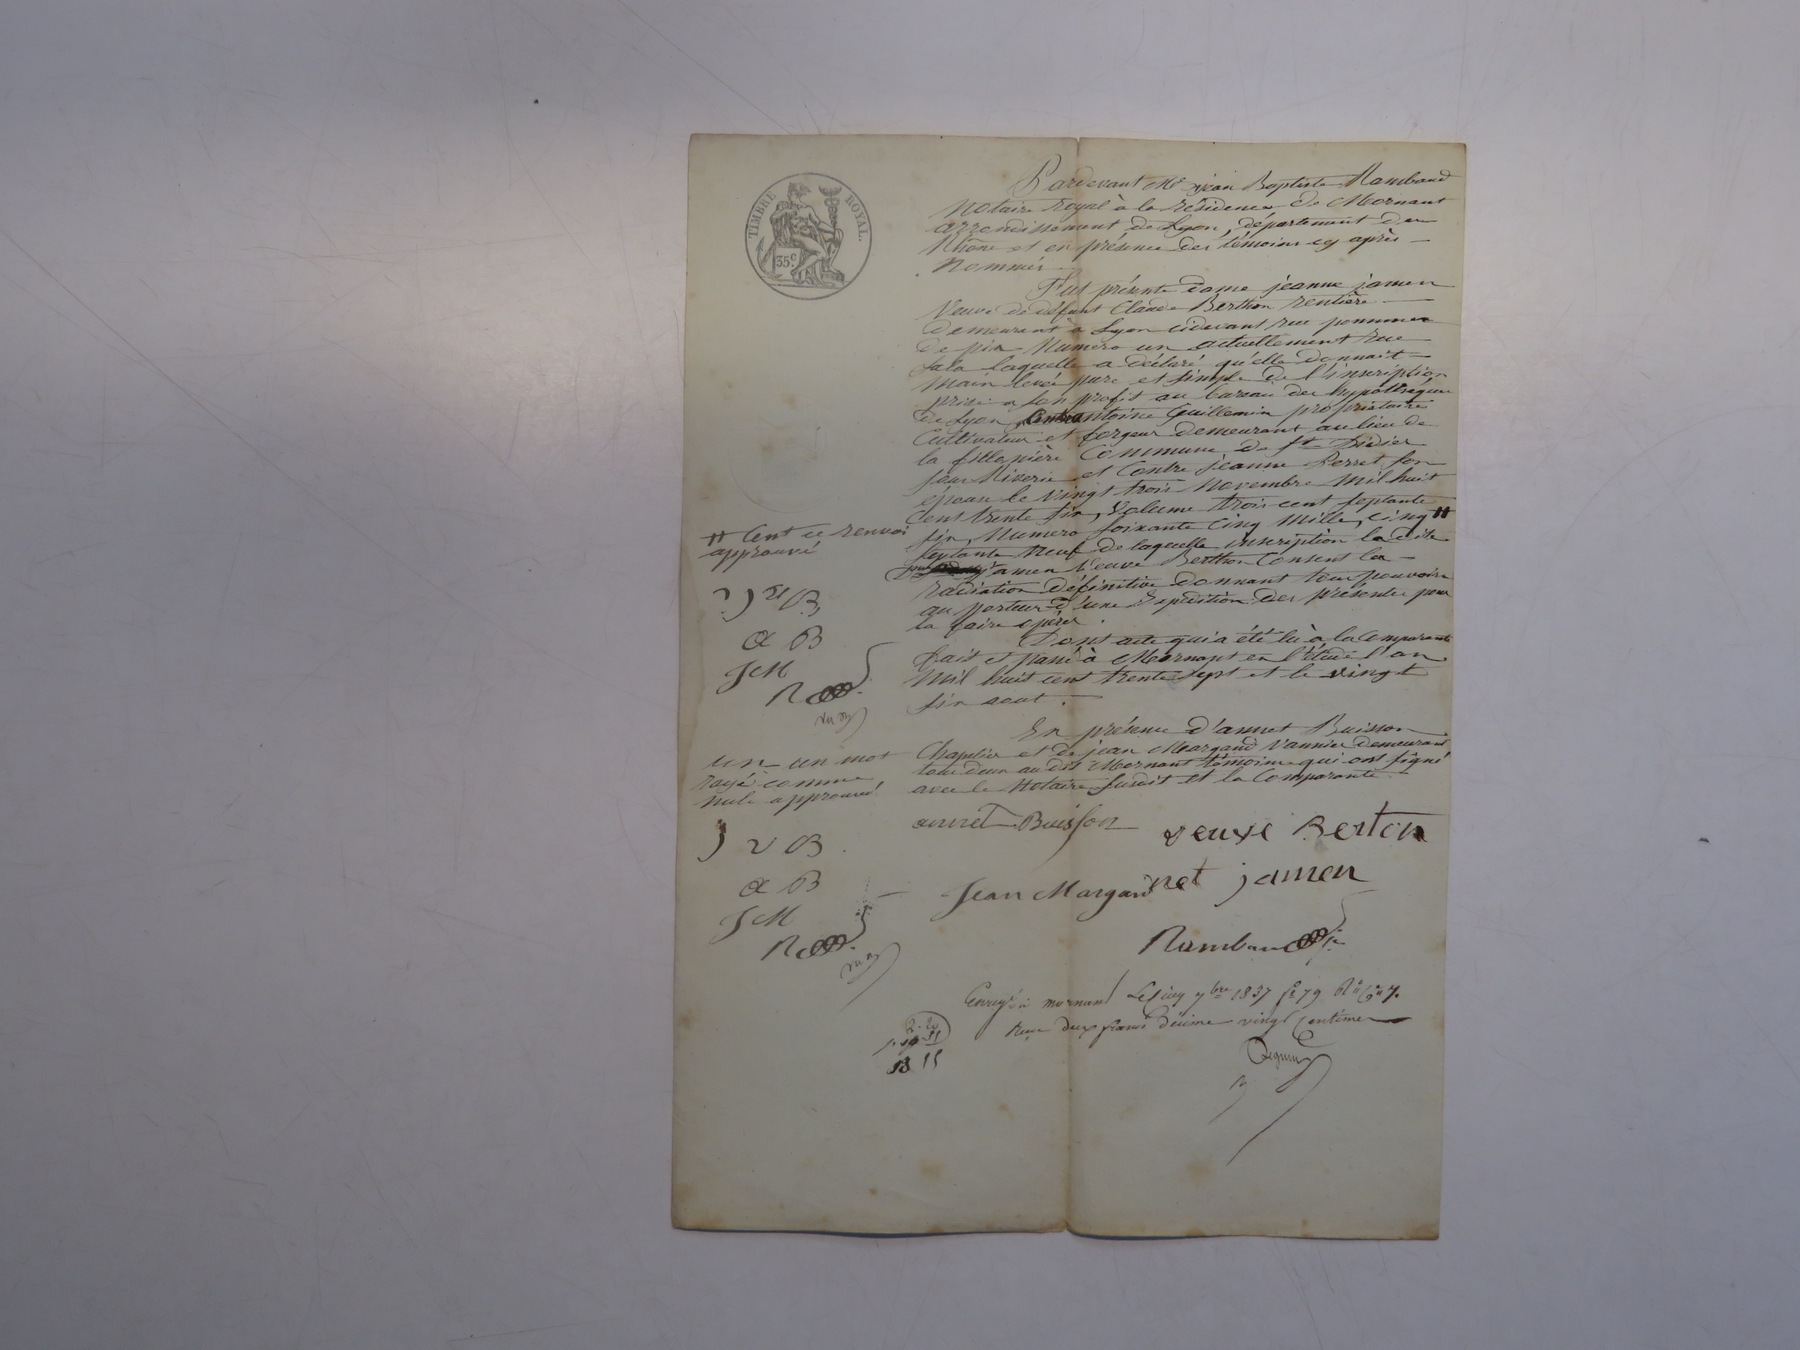 TIMBRE ROYAL.
35 c.
Pardevant Me jean Baptiste Rambaud
Notaire royal à la résidence de Mornant
arrondissement de Lyon, département du
Rhône et en présence des témoins cy après
Nommés
Fut présente Dame jeanne jamen
Veuve de défunt Claude Berthon rentière
demeurant à Lyon cidevant rue pomme
de pin Numero un actuellement rue
Sala laquelle a déclaré qu'elle donnait
Main levée pure et simple de l'inscription
prise a son profit au bureau des hypothèques
de Lyon, Contre antoine Guillemin propriétaire
Cultivateur et forgeur demeurant au lieu de
la Commune de St Didier
sous Riverie et Contre jeanne Perret son
épouse le vingt trois Novembre Mil huit
Cent trente six, Volume trois cent septante
six, Numero soixante cinq Mille, cinq #
septante Neuf de laquelle inscription la dite
jamen Veuve Berthon Consent la
radiation définitive donnant tous pouvoirs
au porteur d'une Expédition des présentes pour
la faire opérer.
Dont acte qui a été lû à la Comparante
fait et passé à Mornant en l'étude l'an
Mil huit cent trente sept et le vingt
six aout.
En présence d'annet Buisson
Chapelier et de jean Margand Vannier demeurant
tous deux au dit Mornant témoins qui ont signé
avec le Notaire susdit et la Comparante
# Cent ce renvoi
approuvé
a B
JM
R
un un mot
rayé comme
nule approuvé
J v B
a B
JM
R
annet Buisson
veuve Berton
net jamen
Jean Margand
Rambaud
Enregé à mornant Le cinq 7bre 1837 fo 79
Reçu deux francs décime vingt Centimes